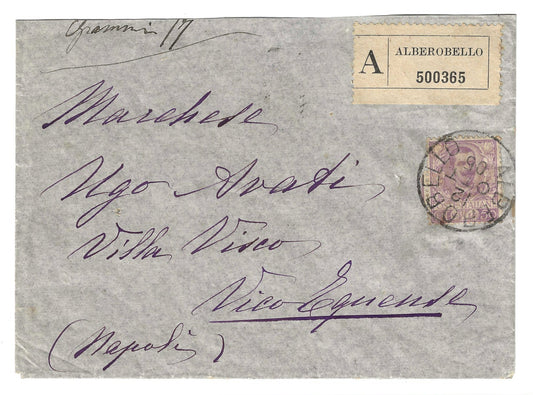 Grammi 17
A ALBEROBELLO
500365
Marchese
Ugo Avati
ALBEROBELLO
Villa Visco
Vico Equense
(Napoli)